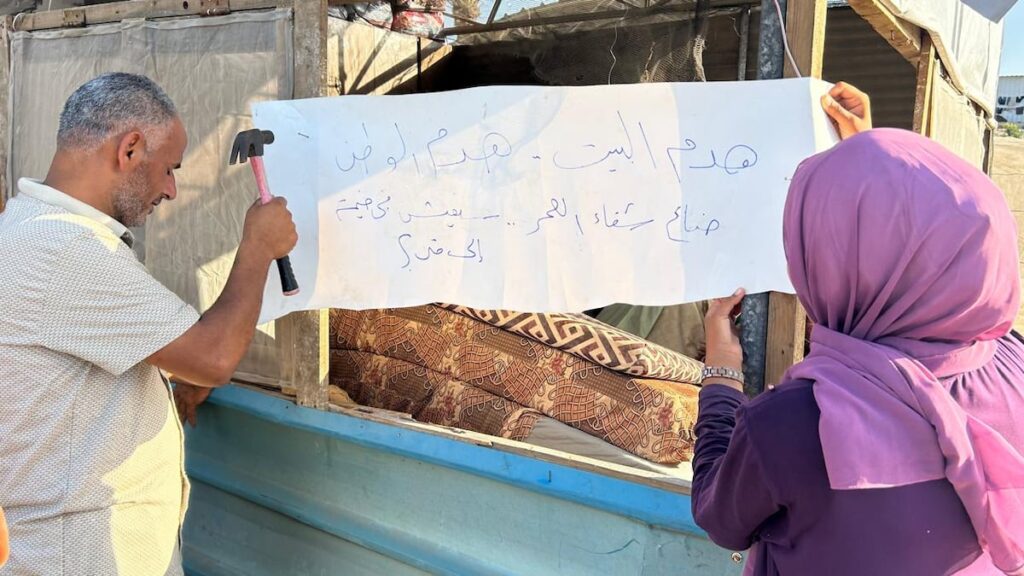 هدم البيت .. هدم الوطن
ضاع شقاء العمر .. سنعيش في خيمة
إلى متى؟